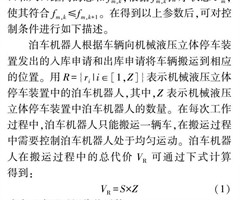 使其符合 fm,k≤fm,k+1。在得到以上参数后,可对控
制条件进行如下描述。
泊车机器人根据车辆向机械液压立体停车装
置发出的入库申请和出库申请将车辆搬运到相应
的位置。用 R={ri|i∈[1,Z]}表示机械液压立体停
车装置中的泊车机器人,其中,Z 表示机械液压立
体停车装置中泊车机器人的数量。在每次工作
过程中,泊车机器人只能搬运一辆车,在搬运过程
中需要控制泊车机器人处于均匀运动。泊车机器
人在搬运过程中的总代价 VR 可通过下式计算
得到:
VR=S×Z (1)